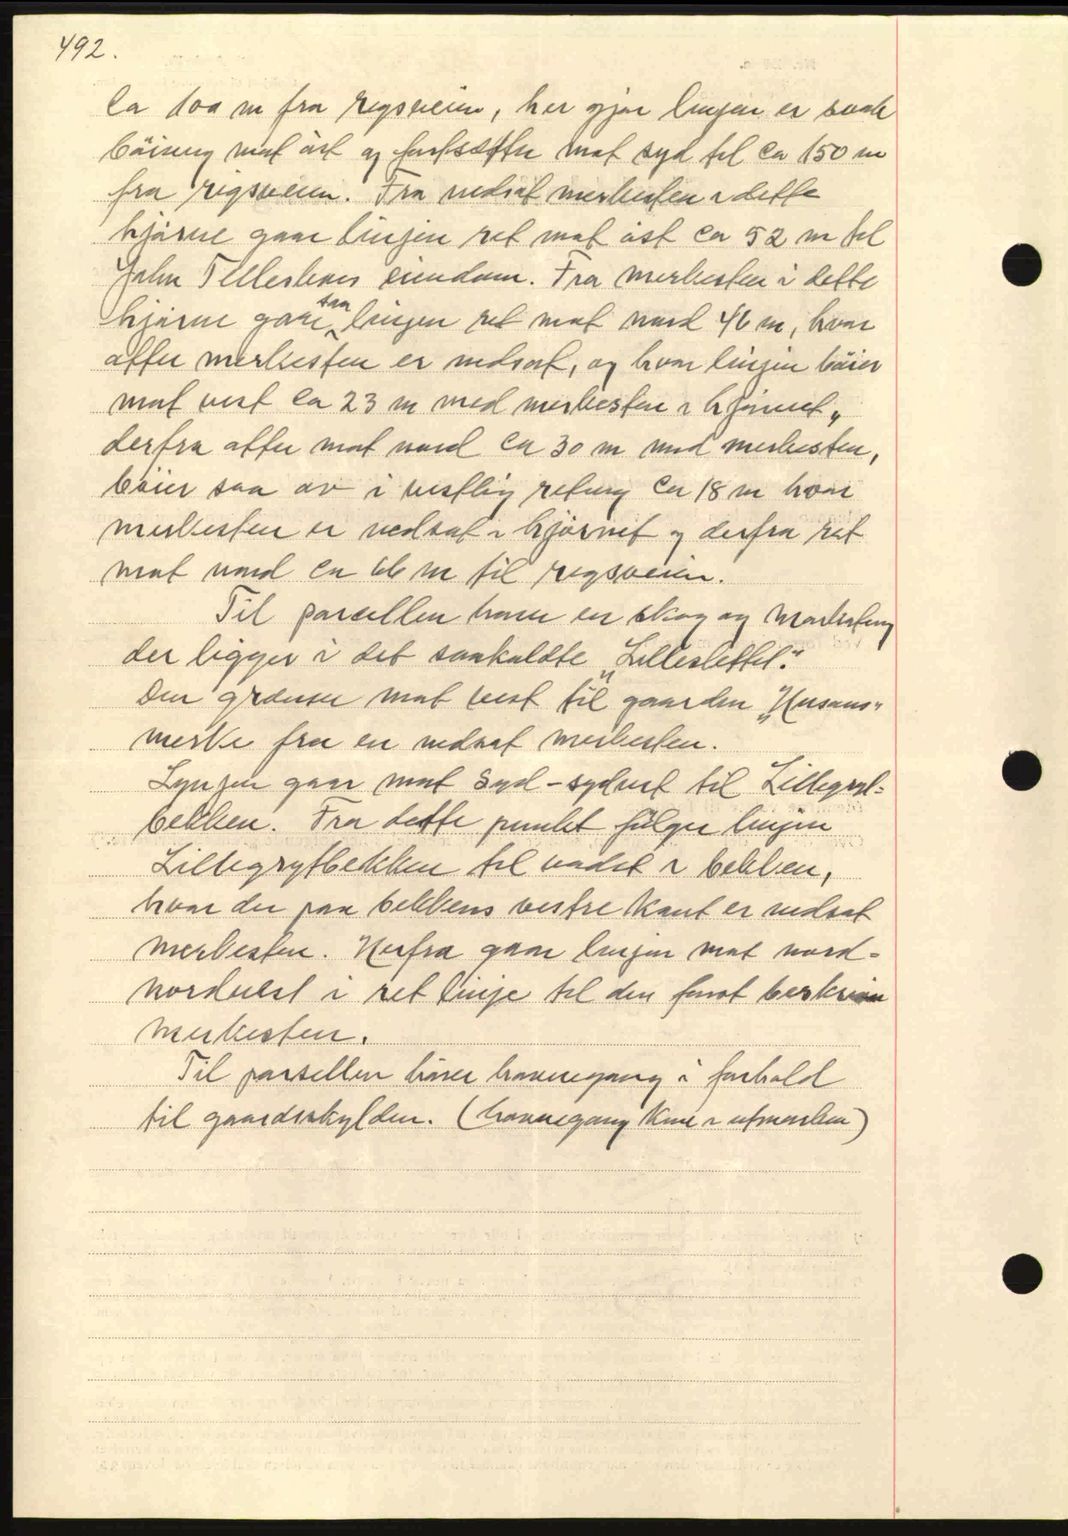 492.
Ca 100 m fra rigsveien, her gjør linjen en svak
böining mot öst og fortsætter mot syd til ca 150 m
fra rigsveien. Fra nedsat merkesten i dette
hjörne gaar linjen ret mot öst ca 52 m til
John Tellesbøs eiendom. Fra merkesten i dette
hjörne gaar saa linjen ret mot nord 46 m, hvor
atter merkesten er nedsat, og hvor linjen böier
mot vest ca 23 m med merkesten i hjörnet,
derfra atter mot nord ca 30 m med merkesten,
böier saa av i vestlig retning ca 18 m hvor
merkesten er nedsat i hjörnet og derfra ret
mot nord ca 66 m til rigsveien.
Til parcellen hører en skog og
der ligger i det saakaldte „Lilleslettet".
Den grænser mot vest til gaarden „Husans-
merke fra en nedsat merkesten.
Lynjen gaar mot Syd-sydvest til Lillegryt-
bekken. Fra dette punkt fölger linjen
Lillegrytbekken til vadet i bekken,
hvor der paa bekkens vestre kant er nedsat
merkesten. Herfra gaar linjen mot nord-
nordvest i ret linje til den först beskrevne
merkesten.
Til parsellen hörer havnegang i forhold
til gaardsskylden. (havnegang kun i utmarken)